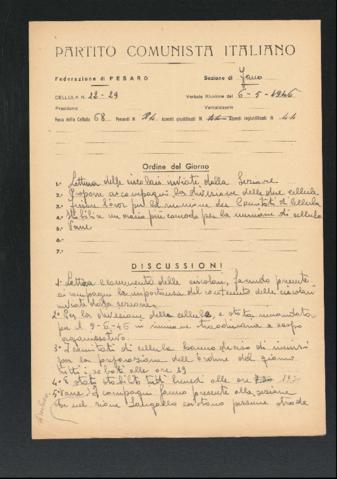 PARTITO COMUNISTA ITALIANO
Federazione di PESARO Sezione di Fano
CELLULA N. 22-29 Verbale Riunione del 6-5-1946
Presidente Verbalizzante
Forza della Cellula 68 Presenti N. 24 Assenti giustificati N. Assenti ingiustificati N. 44
Ordine del Giorno
1° Lettura delle circolari inviate dalla Sezione
2° Proporre ai compagni la divisione delle due cellule
3° per le riunioni dei Comitati di Cellula
4° Stabilire un orario più comodo per la riunione di cellula
5° Varie
6°
7°
DISCUSSIONI
1° Lettura e commento delle circolari, facendo presente
ai compagni la importanza del contenuto delle circolari
inviate dalla sezione
2° Per la divisione della cellula, è stata rimandata
per il 9-6-46 in riunione straordinaria a scopo
organizzativo.
3° I comitati di cellula hanno deciso di riunirsi
per la preparazione dell'ordine del giorno
tutti i sabati alle ore 19
4° È stato stabilito tutti lunedì alle ore
5° Varie I compagni fanno presente alla sezione
che nel rione esistono persone